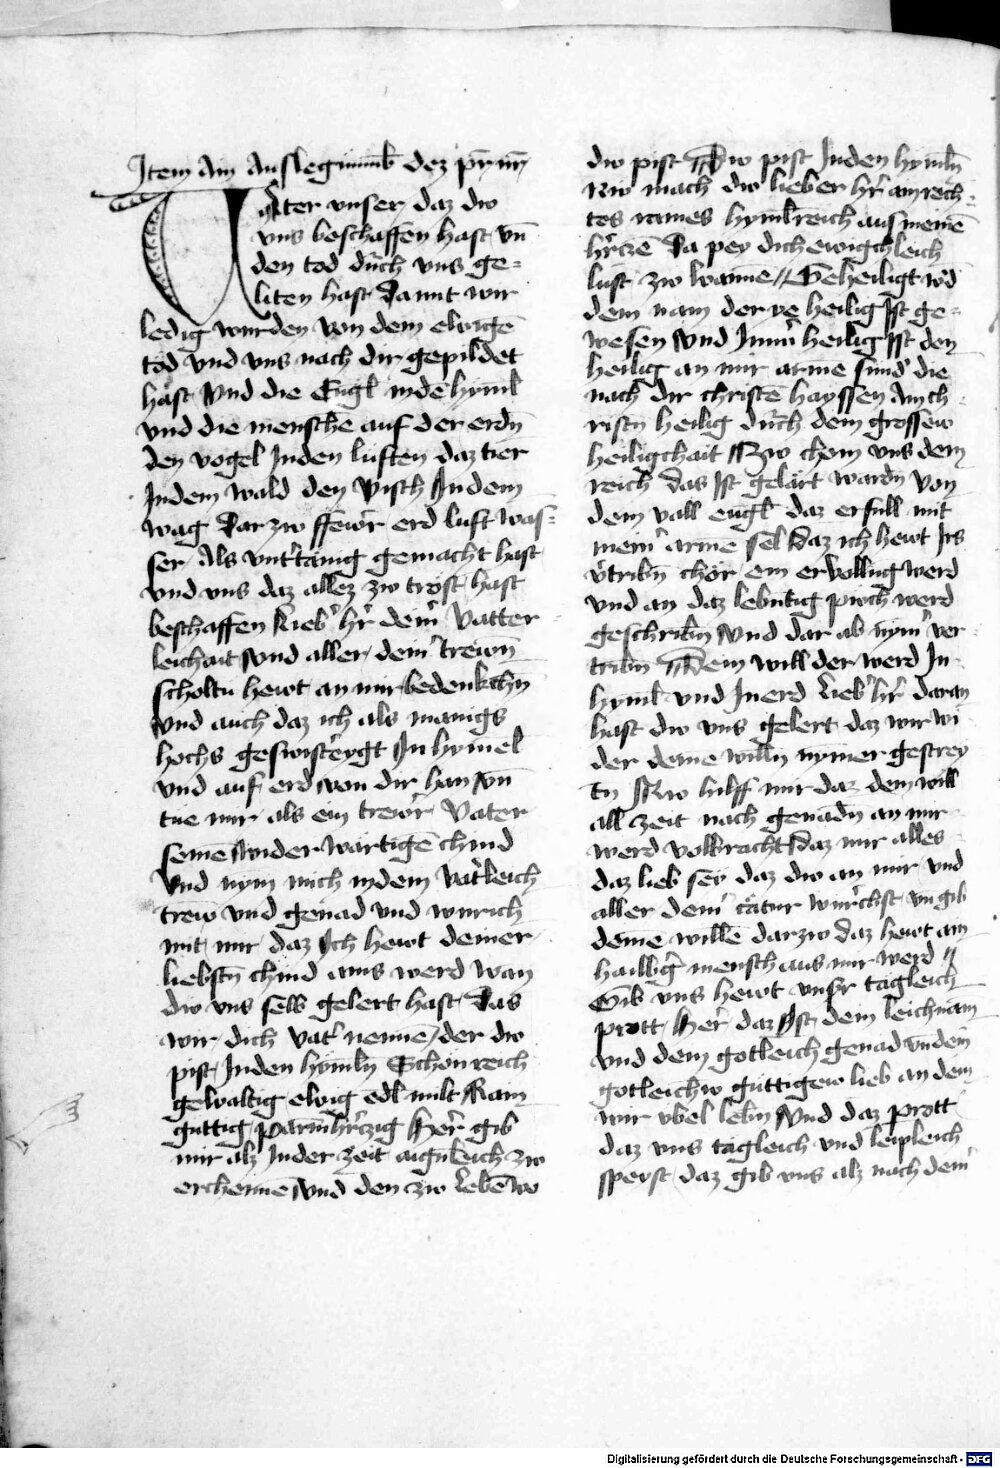 Item Ain Auslegūmb dez pr̄ nr̄
Vater vnser daz dw
vns beschaffen hast vn̄
den tod durch vns ge=
liten hast Da mit wir
ledig wurden von dem ewigē
tod vnd vns nach dir gepildet
hast Vnd die Engl in dē hyml
vnd die menschē auf der erdn̄
den vogel In den luften daz tier
In dem wald den visch In dem
wag Dar zw ffewr erd luft was=
ser Als vnttänig gemacht hast
vnd vns daz allez zw trost hast
beschaffen Lieb' h'r dein' Vatter
leichait Vnd aller dein' trewn̄
scholtu hewt an mir bedenkchn̄
Vnd auch daz ich als manigs
hochs In hymel
vnd auf erd von dir han vn̄
tue mir als ein trewr Vater
seinē widerwärtigē chind
Vnd nym mich in dem vatleich
trew vnd genad vnd wurich
mit mir daz Ich hewt deiner
liebstn̄ chind ains werd wan
dw vns selb gelert hast Das
wir dich vat' nennē / der dw
pist In den hymln̄ Schon reich
gewaltig ewig edl milt Rain
guttig parmh'rczig Her gib
mir alz In der zeit aign̄leich zw
erchennē Vnd den zw lebē wo
dw pist Dw pist In den hymln̄
Nw mach dw lieber h'r ain rech=
tes raines hymlreich aus meinē
h'rczē Da pey dich ewigchleich
lust zw wanne // Geheiligt w'd
dein nam der ye heilig Ist ge=
wesen Vnd Imm' heilig Ist den
heilig an mir armē sund' die
nach dir christē hayssen Mich
ristn̄ heilig durch dein grossew
heiligchait Zw chom vns dein
reich das Ist gelärt wardn̄ von
dem vall engl daz erfull mit
mein' arme sel Daz ich hewt Irs
v'tribn̄ chor ein ervollūg werd
vnd an daz lebntig puch werd
geschribn̄ Vnd dar ab nym' ver=
tribn̄ Dein will der werd In
hyml vnd In erd Lieb' h'r daran
hast dw vns gelert daz wir wi
der deinē willn̄ nymer gestrey
tn̄ Nw hilff mir daz dein will
all zeit nach genadn̄ an mir
werd volbracht Daz mir alles
daz lieb sey daz dw an mir vnd
aller dein' cätur würchst vn̄ gib
deinē willē darzw daz hewt ain
hailig' mensch aus mir werd //
Gib vns hewt vnsr tagleich
prott Her daz Ist dein leichnam
vnd dein gotleich genad vn̄ dein
gotleichw güttigew lieb an dem
wir vbel lebn̄ Vnd daz prott
daz vns tagleich vnd leipleich
speyst daz gib vns alz nach dein'
Digitalisierung gefördert durch die Deutsche Forschungsgemeinschaft - DFG